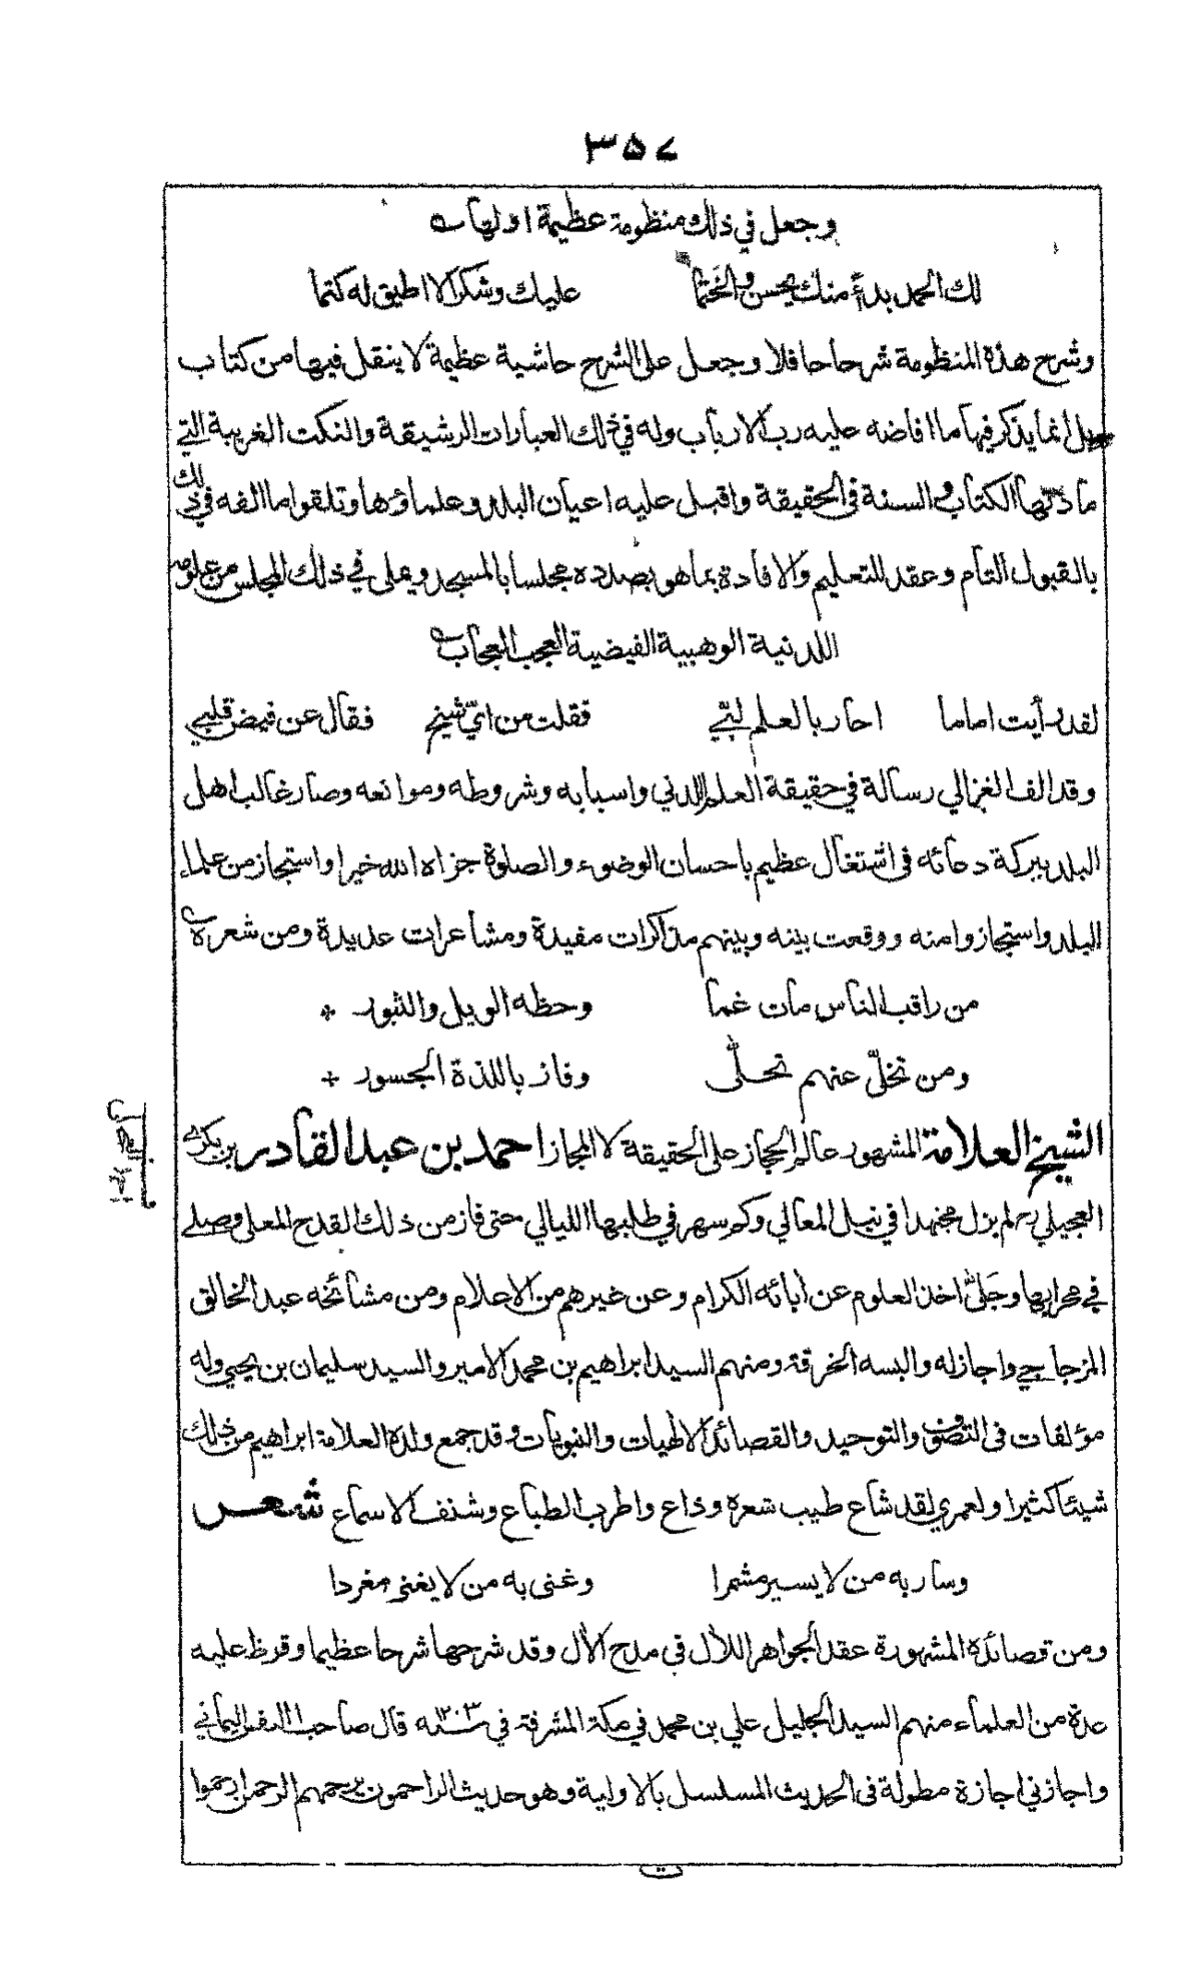 ٣٥٧
وجعل في ذلك منظومة عظيمة اولها
لك الحمد بدأ منك يحسن والختما عليك وشكر لا اطيق له كتما
وشرح هذه المنظومة شرحا حافلا وجعل على الشرح حاشية عظيمة لا ينقل فيها من كتاب
بل انما يذكر فيها ما افاضه عليه رب الارباب وله في ذلك العبارات الرشيقة والنكت الغريبة التي
مادتها الكتاب والسنة في الحقيقة واقبل عليه اعيان البلد وعلماؤها وتلقوا ما الفه في ذلك
بالقبول التام وعقد للتعليم والافادة بما هو بصدده مجلسا بالمسجد ويملى في ذلك المجلس من علومه
اللدنية الوهبية الفيضية العجب العجاب
لقد رأيت اماما احار بالعلم لبّي فقلت من ايّ شيخ فقال عن فيض قلبي
وقد الف الغزالي رسالة في حقيقة العلم اللدني واسبابه وشروطه وموانعه وصار غالب اهل
البلد ببركة دعائه في اشتغال عظيم باحسان الوضوء والصلوة جزاه الله خيرا واستجاز من علماء
البلد واستجازوا منه ووقعت بينه وبينهم مذاكرات مفيدة ومشاعرات عديدة ومن شعره
من راقب الناس مات غما وحظه الويل والثبور *
ومن تخلّى عنهم تحلّى وفاز باللذة الجسور *
الشيخ العلامة المشهور عالم الحجاز على الحقيقة لا المجاز احمد بن عبد القادر بن بكري
العجيلي رح لم يزل مجتهدا في نيل المعالي وكم سهر في طلبها الليالي حتى فاز من ذلك القدح المعلى وصلى
في محرابها وجَلّى اخذ العلوم عن آبائه الكرام وعن غيرهم من الاعلام ومن مشائخه عبد الخالق
المزجاجي واجاز له والبسه الخرقة ومنهم السيد ابراهيم بن محمد الامير والسيد سليمان بن يحيى وله
مؤلفات في التصوف والتوحيد والقصائد الالهيات والنبويات وقد جمع ولده العلامة ابراهيم من ذلك
شيئا كثيرا ولعمري لقد شاع طيب شعره وذاع واطرب الطباع وشنف الاسماع شعر
وسار به من لا يسير مشمرا وغنى به من لا يغني مغردا
ومن قصائده المشهورة عقد الجواهر اللال في مدح الآل وقد شرحها شرحا عظيما وقرظ عليه
عدة من العلماء منهم السيد الجليل علي بن محمد في مكة المشرفة في ١٢٠٣ سنه قال صاحب النفس اليماني
واجازني اجازة مطولة في الحديث المسلسل بالاولية وهو حديث الراحمون يرحمهم الرحمن ارحموا